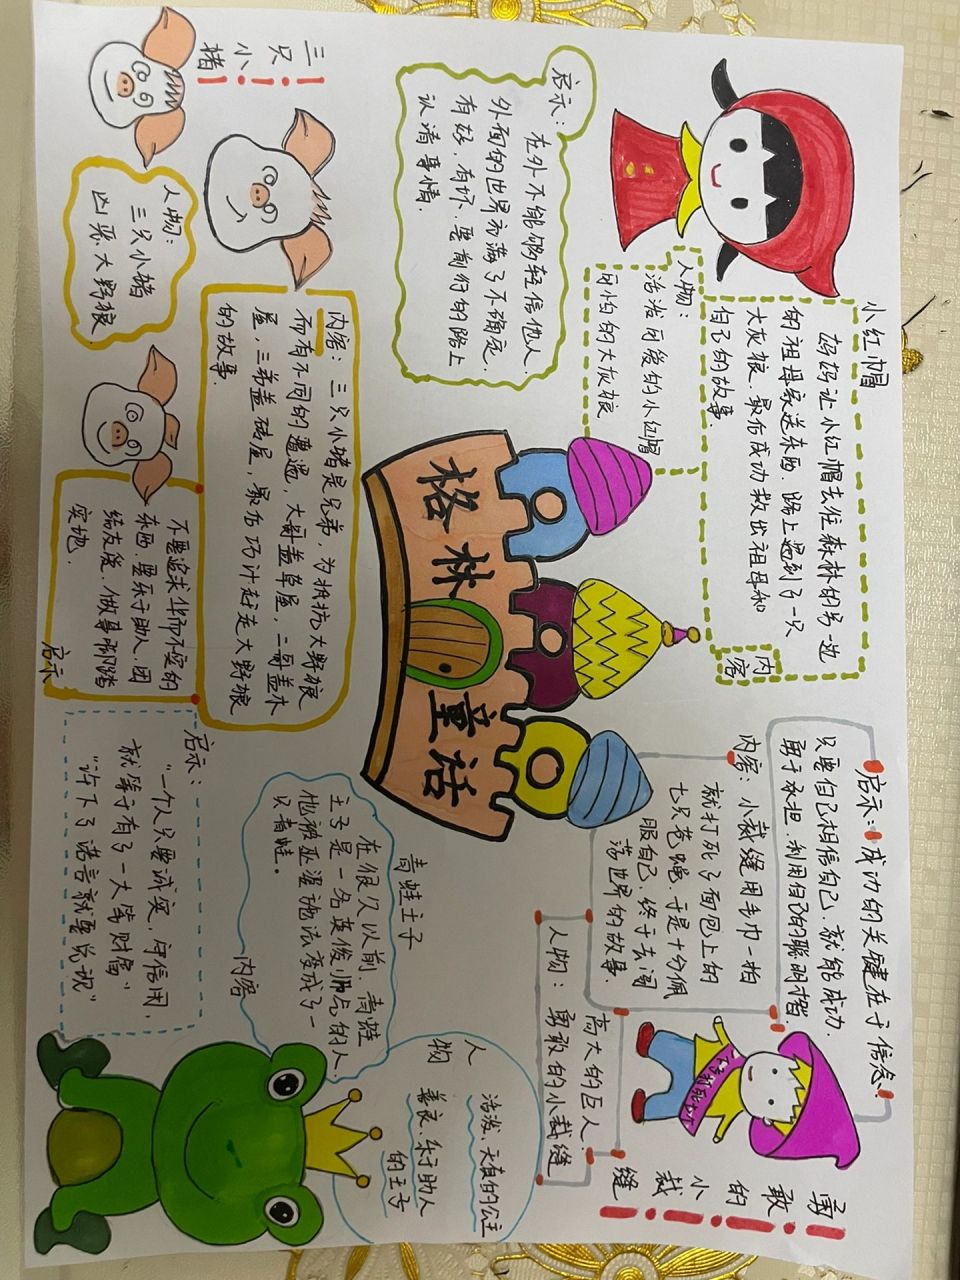 格林童话
小红帽
妈妈让小红帽去住森林的另一边
的祖母家送东西，路上遇到了一只
大灰狼，最后成功救出祖母和
自己的故事
内容
人物：
活泼可爱的小红帽
可怕的大灰狼
启示：
在外不能够轻信他人，
外面的世界充满了不确定，
有好，有坏，要前行的路上
认清事情。
三只小猪
人物：
三只小猪
凶恶大野狼
内容：三只小猪是兄弟，为抵抗大野狼
而有不同的遭遇，大哥盖草屋，二哥盖木
屋，三弟盖砖屋，最后巧计赶走大野狼
的故事。
不要追求华而不实的
东西，要乐于助人，团
结友爱，做事脚踏
实地。
启示
启示：成功的关键在于信念！
只要自己相信自己，就能成功，
勇于承担，利用自己的聪明才智。
内容：小裁缝用毛巾一拍
就打死了面包上的
七只苍蝇，于是十分佩
服自己，终于去闯
荡世界的故事。
人物：
高大的巨人
勇敢的小裁缝
勇敢的小裁缝
青蛙王子
在很久以前，青蛙
王子是一名英俊帅气的人，
他被巫婆施法变成了一
只青蛙。
内容
人物
活泼、天真的公主
善良、乐于助人
的王子
启示：
“一个人只要诚实，守信用，
就等于有了一大笔财富”
“许下了诺言就要兑现”